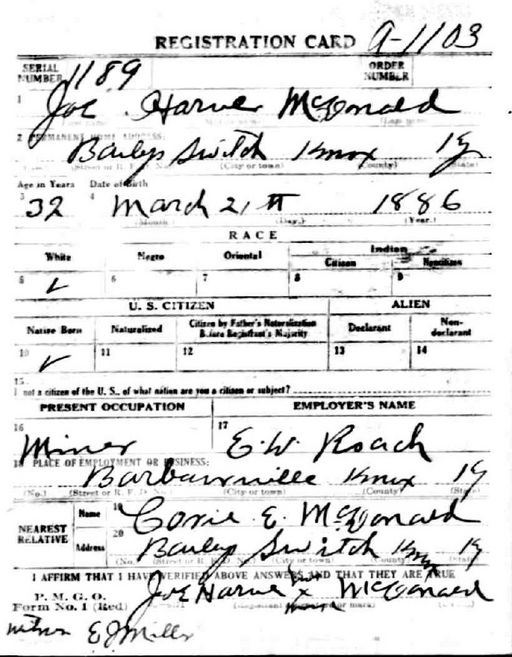 REGISTRATION CARD A-1103
SERIAL NUMBER 1189 ORDER NUMBER
1 Joe Harve McDonald
2 PERMANENT HOME ADDRESS:
Baileys Switch Knox Ky
(Street or R. F. D. No.) (City or town) (County) (State)
Age in Years Date of Birth
3 32 4 March 21st 1886
(Month) (Day.) (Year.)
RACE
White Negro Oriental Indian
Citizen Noncitizen
5 ✓ 6 7 8 9
U. S. CITIZEN ALIEN
Native Born Naturalized Citizen by Father's Naturalization Before Registrant's Majority Declarant Non-declarant
10 ✓ 11 12 13 14
15
If not a citizen of the U. S., of what nation are you a citizen or subject?
PRESENT OCCUPATION EMPLOYER'S NAME
16 Miner 17 E. W. Roach
18 PLACE OF EMPLOYMENT OR BUSINESS:
Barbourville Knox Ky
(No.) (Street or R. F. D. No.) (City or town) (County) (State)
NEAREST RELATIVE Name 19 E. McDonald
Address 20 Baileys Switch Knox Ky
(No.) (Street or R. F. D. No.) (City or town) (County) (State)
I AFFIRM THAT I HAVE VERIFIED ABOVE ANSWERS AND THAT THEY ARE TRUE
P. M. G. O.
Form No. 1 (Red) Joe Harve x McDonald
(Registrant's signature or mark)
Witness E J Miller